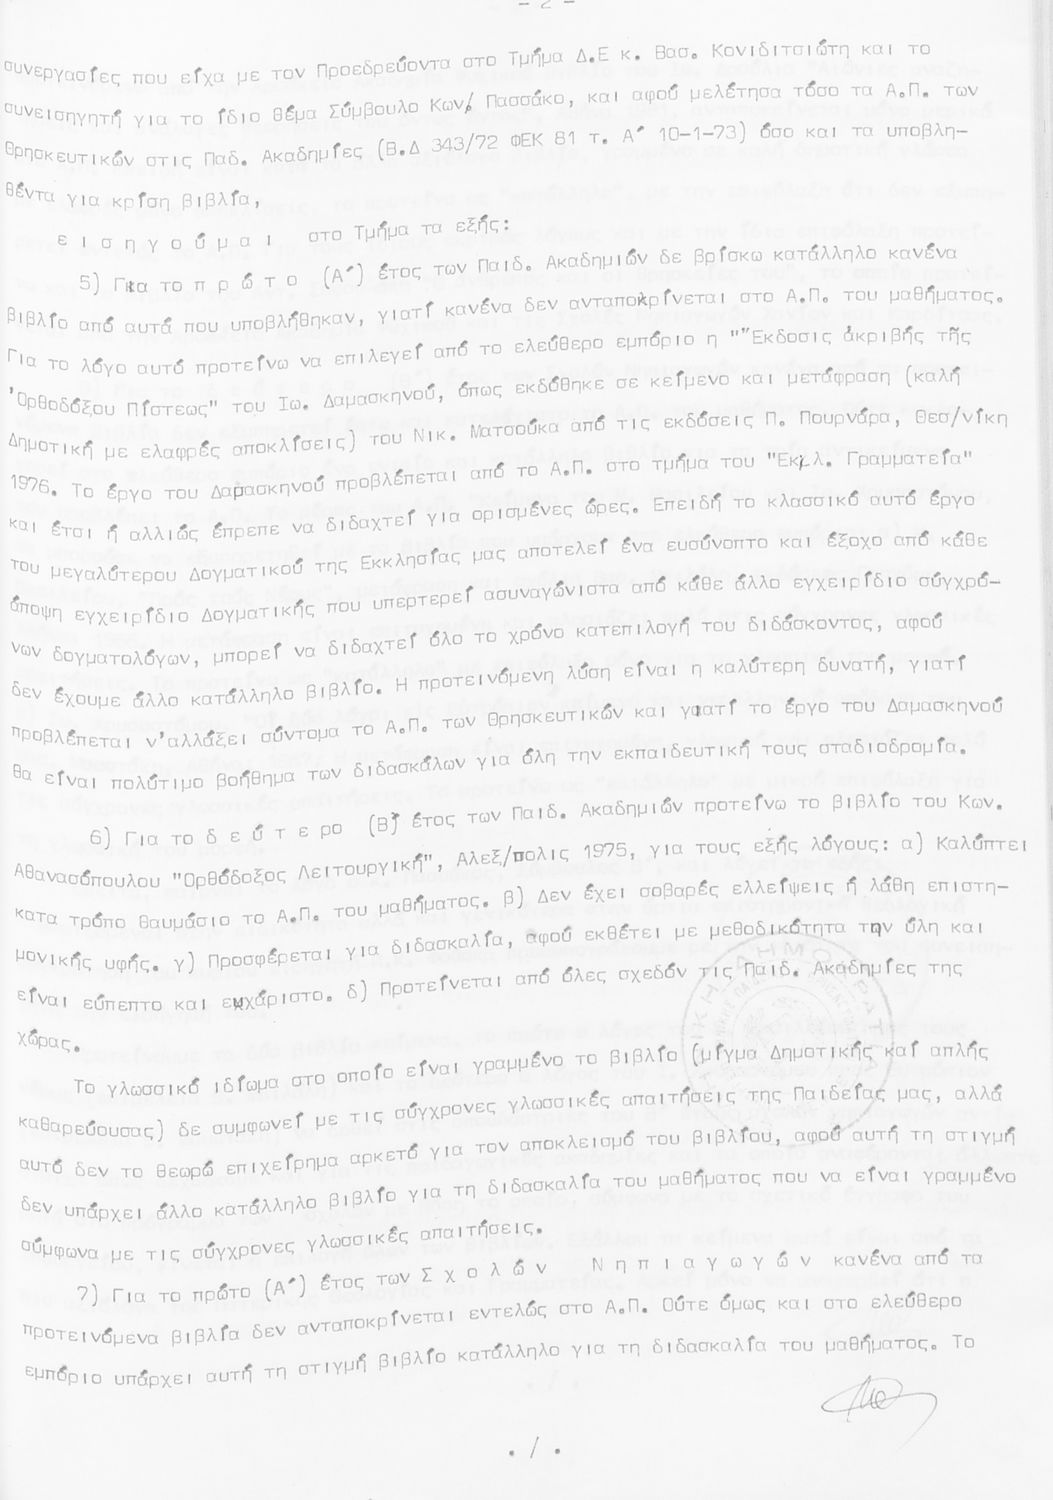 - 2 -
συνεργασίες που είχα με τον Προεδρεύοντα στο Τμήμα Δ.Ε κ. Βασ. Κονιδιτσιώτη και το
συνεισηγητή για το ίδιο θέμα Σύμβουλο Κων/ Πασσάκο, και αφού μελέτησα τόσο τα Α.Π. των
θρησκευτικών στις Παδ. Ακαδημίες (Β.Δ 343/72 ΦΕΚ 81 τ. Α´ 10-1-73) όσο και τα υποβλη-
θέντα για κρίση βιβλία,
ε ι σ η γ ο ύ μ α ι στο Τμήμα τα εξής:
5) Για το π ρ ώ τ ο (Α´) έτος των Παιδ. Ακαδημιών δε βρίσκω κατάλληλο κανένα
βιβλίο από αυτά που υποβλήθηκαν, γιατί κανένα δεν ανταποκρίνεται στο Α.Π. του μαθήματος.
Για το λόγο αυτό προτείνω να επιλεγεί από το ελεύθερο εμπόριο η "Ἔκδοσις ἀκριβής τῆς
Ὀρθοδόξου Πίστεως" του Ιω. Δαμασκηνού, όπως εκδόθηκε σε κείμενο και μετάφραση (καλή
Δημοτική με ελαφρές αποκλίσεις) του Νικ. Ματσούκα από τις εκδόσεις Π. Πουρνάρα, Θεσ/νίκη
1976. Το έργο του Δαμασκηνού προβλέπεται από το Α.Π. στο τμήμα του "Εκκλ. Γραμματεία"
και έτσι ή αλλιώς έπρεπε να διδαχτεί για ορισμένες ώρες. Επειδή το κλασσικό αυτό έργο
του μεγαλύτερου Δογματικού της Εκκλησίας μας αποτελεί ένα ευσύνοπτο και έξοχο από κάθε
άποψη εγχειρίδιο Δογματικής που υπερτερεί ασυναγώνιστα από κάθε άλλο εγχειρίδιο σύγχρό-
νων δογματολόγων, μπορεί να διδαχτεί όλο το χρόνο κατεπιλογή του διδάσκοντος, αφού
δεν έχουμε άλλο κατάλληλο βιβλίο. Η προτεινόμενη λύση είναι η καλύτερη δυνατή, γιατί
προβλέπεται ν'αλλάξει σύντομα το Α.Π. των θρησκευτικών και γιατί το έργο του Δαμασκηνού
θα είναι πολύτιμο βοήθημα των διδασκάλων για όλη την εκπαιδευτική τους σταδιοδρομία.
6) Για το δ ε ύ τ ε ρ ο (Β´) έτος των Παιδ. Ακαδημιών προτείνω το βιβλίο του Κων.
Αθανασόπουλου "Ορθόδοξος Λειτουργική", Αλεξ/πολις 1975, για τους εξής λόγους: α) Καλύπτει
κατα τρόπο θαυμάσιο το Α.Π. του μαθήματος. β) Δεν έχει σοβαρές ελλείψεις ή λάθη επιστη-
μονικής υφής. γ) Προσφέρεται για διδασκαλία, αφού εκθέτει με μεθοδικότητα την ύλη και
είναι εύπεπτο και ευχάριστο. δ) Προτείνεται από όλες σχεδόν τις Παιδ. Ακαδημίες της
χώρας.
Το γλωσσικό ιδίωμα στο οποίο είναι γραμμένο το βιβλίο (μίγμα Δημοτικής καί απλής
καθαρεύουσας) δε συμφωνεί με τις σύγχρονες γλωσσικές απαιτήσεις της Παιδείας μας, αλλά
αυτό δεν το θεωρώ επιχείρημα αρκετό για τον αποκλεισμό του βιβλίου, αφού αυτή τη στιγμή
δεν υπάρχει άλλο κατάλληλο βιβλίο για τη διδασκαλία του μαθήματος που να είναι γραμμένο
σύμφωνα με τις σύγχρονες γλωσσικές απαιτήσεις.
7) Για το πρώτο (Α´) έτος των Σ χ ο λ ώ ν Ν η π ι α γ ω γ ώ ν κανένα από τα
προτεινόμενα βιβλία δεν ανταποκρίνεται εντελώς στο Α.Π. Ούτε όμως και στο ελεύθερο
εμπόριο υπάρχει αυτή τη στιγμή βιβλίο κατάλληλο για τη διδασκαλία του μαθήματος. Το
. / .